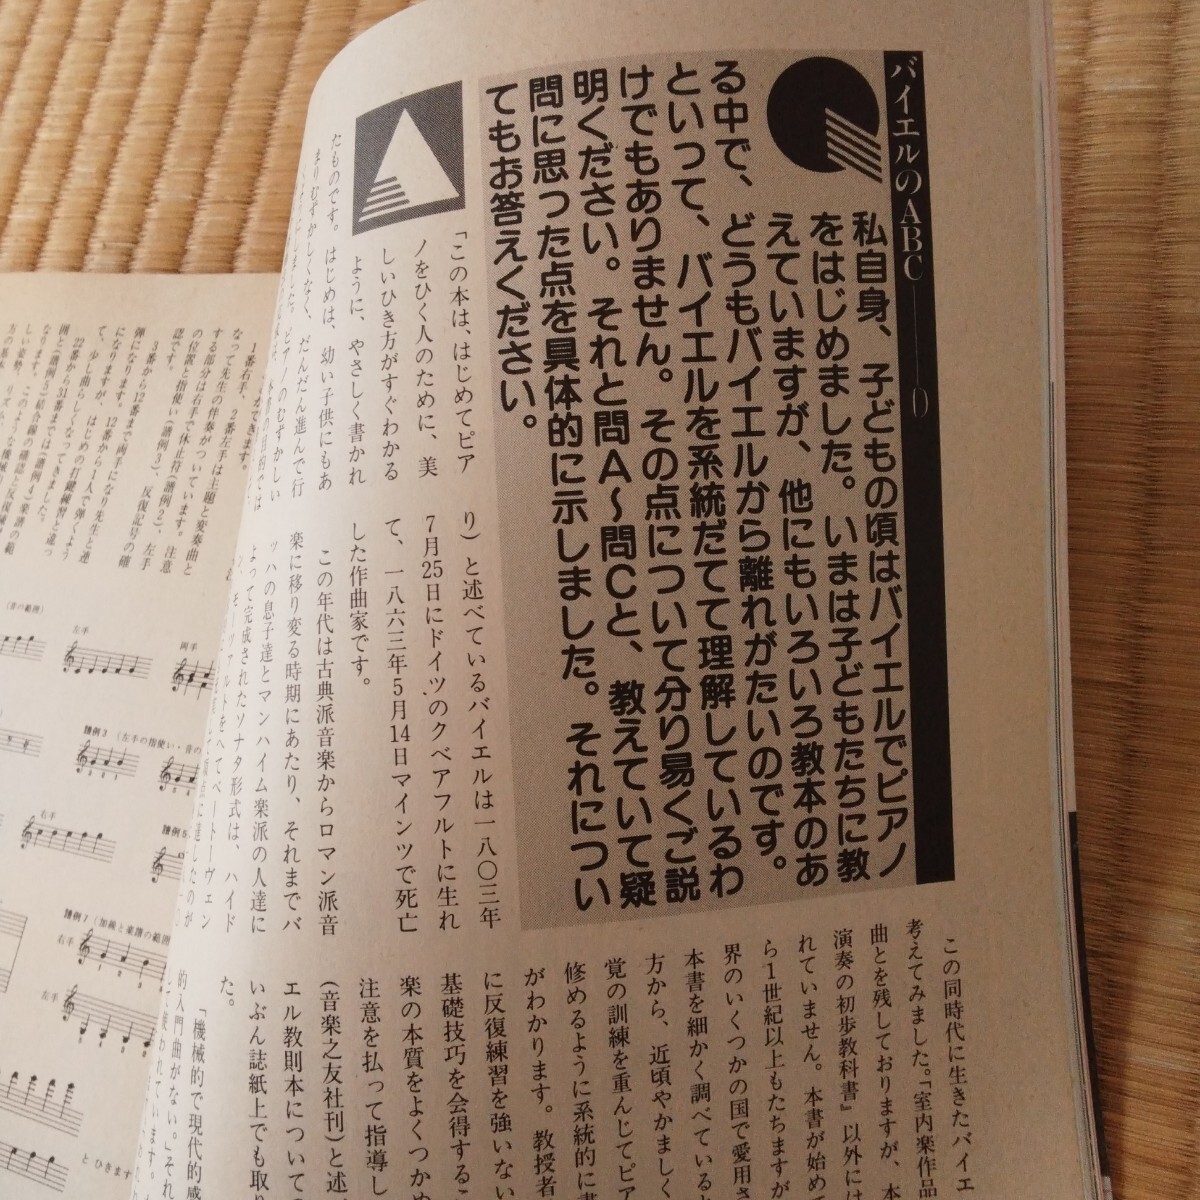 バイエルのABC——D
私自身、子どもの頃はバイエルでピアノ
をはじめました。いまは子どもたちに教
えていますが、他にもいろいろ教本のあ
る中で、どうもバイエルから離れがたいのです。
といって、バイエルを系統だてて理解しているわ
けでもありません。その点について分り易くご説
明ください。それと問A〜問Cと、教えていて疑
問に思った点を具体的に示しました。それについ
てもお答えください。
「この本は、はじめてピア
ノをひく人のために、美
しいひき方がすぐわかる
ように、やさしく書かれ
たものです。はじめは、幼い子供にもあ
まりむずかしくなく、だんだん進んで行
り）と述べているバイエルは一八〇三年
7月25日にドイツのクベアフルトに生れ
て、一八六三年5月14日マインツで死亡
した作曲家です。
この年代は古典派音楽からロマン派音
楽に移り変る時期にあたり、それまでバ
ッハの息子達とマンハイム楽派の人達に
よって完成されたソナタ形式は、ハイド
この同時代に生きたバイエ
考えてみました。「室内楽作品
曲とを残しておりますが、本
演奏の初歩教科書』以外には
れていません。本書が始めて
ら1世紀以上もたちますが
界のいくつかの国で愛用さ
本書を細かく調べていると
方から、近頃やかましく
覚の訓練を重んじてピア
修めるように系統的に書
がわかります。教授者
に反復練習を強いない
基礎技巧を会得するこ
楽の本質をよくつかめ
注意を払って指導し
（音楽之友社刊）と述
エル教則本についての
いぶん誌紙上でも取り
た。
「機械的で現代的感
的入門曲がない。」それ
1番右手、2番左手は主題と変奏曲と
なって先生の伴奏がついています。
する部分は右手で休止符（譜例2）、注意
の位置と指使い（譜例3）、反復記号の確
認です。
3番から12番まで両手になり先生と連
弾になります。12番から1人で弾くよう
になりますが、はじめの打鍵練習と違っ
て、少し曲らしくなってきました。
22番から31番までは（譜例4）楽譜の範
囲と（譜例5）結合線の確認と反復練習に
なります。
（音の範囲）
左手
両手
譜例3（左手の指使い・音の
右手
譜例5
譜例7（加線と楽譜の範囲
右手
左手
とひきます